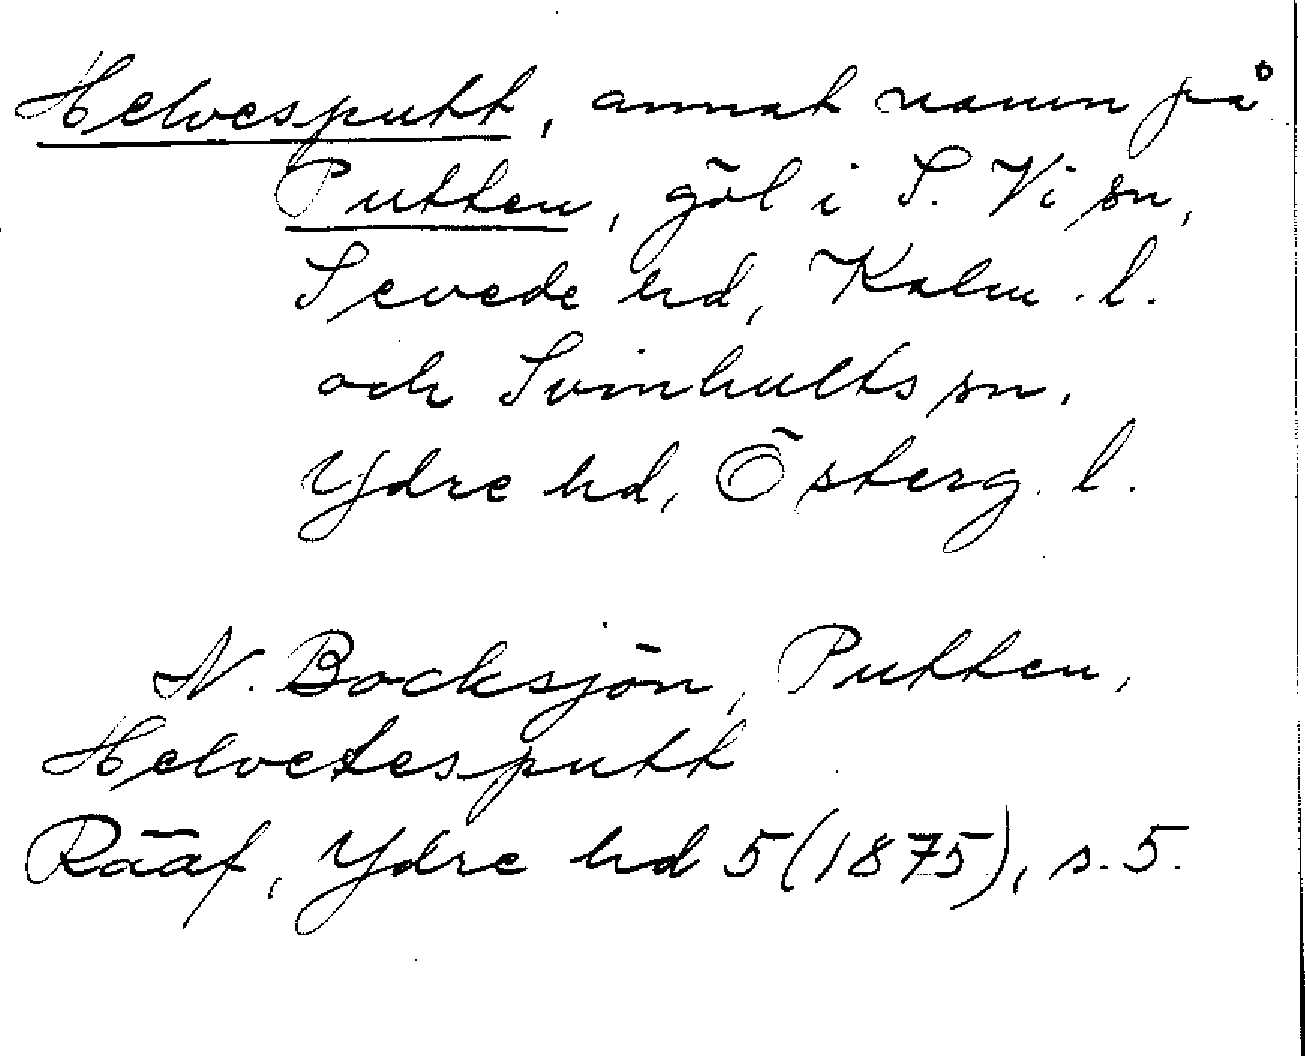 Helvesputt, annat namn på
Putten, göl i S. Vi sn,
Sevede hd, Kalm. l.
och Svinhults sn,
Ydre hd, Österg. l.
N. Bocksjön, Putten,
Helvetesputt
Rääf, Ydre hd 5(1875), s. 5.